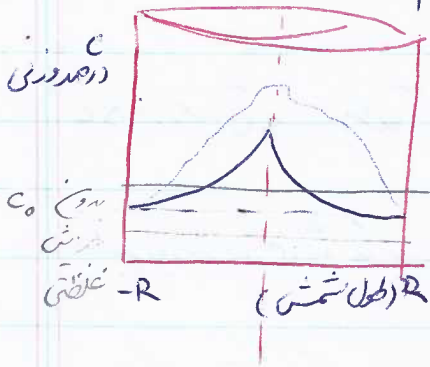 C
درصد وزنی
C₀ بدون
غلظتی
-R (طول شمش) R